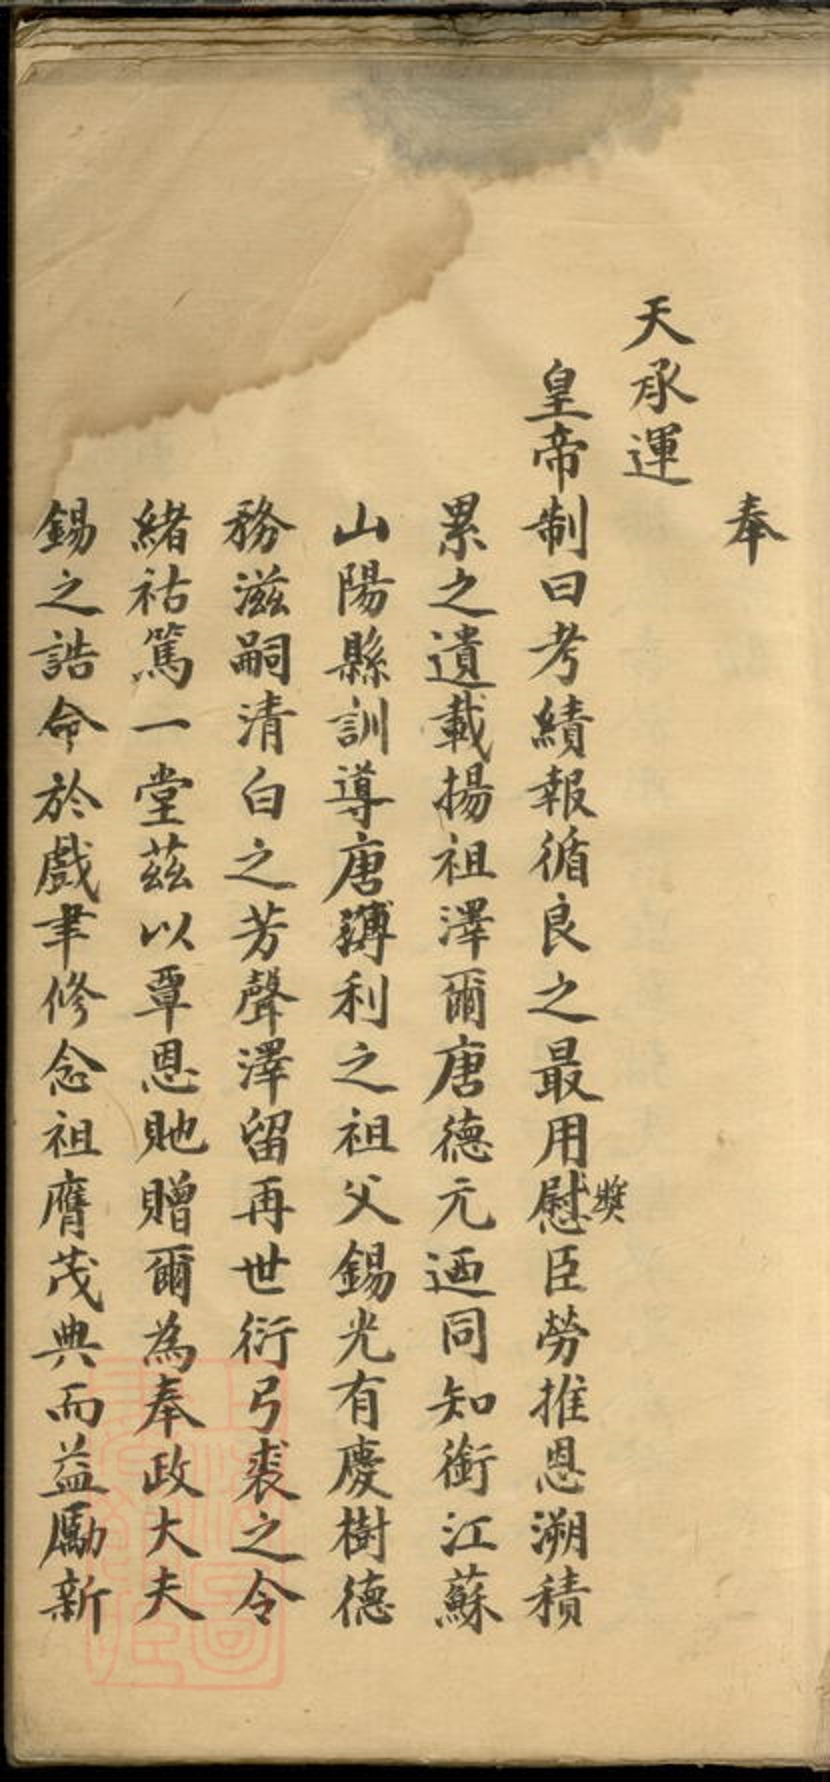 奉
天承運
皇帝制曰考績報循良之最用慰獎臣勞推恩溯積
累之遺載揚祖澤爾唐德元迺同知銜江蘇
山陽縣訓導唐鏄利之祖父錫光有慶樹德
務滋嗣清白之芳聲澤留再世衍弓裘之令
緒祜篤一堂茲以覃恩貤贈爾為奉政大夫
錫之誥命於戲聿修念祖膺茂典而益勵新